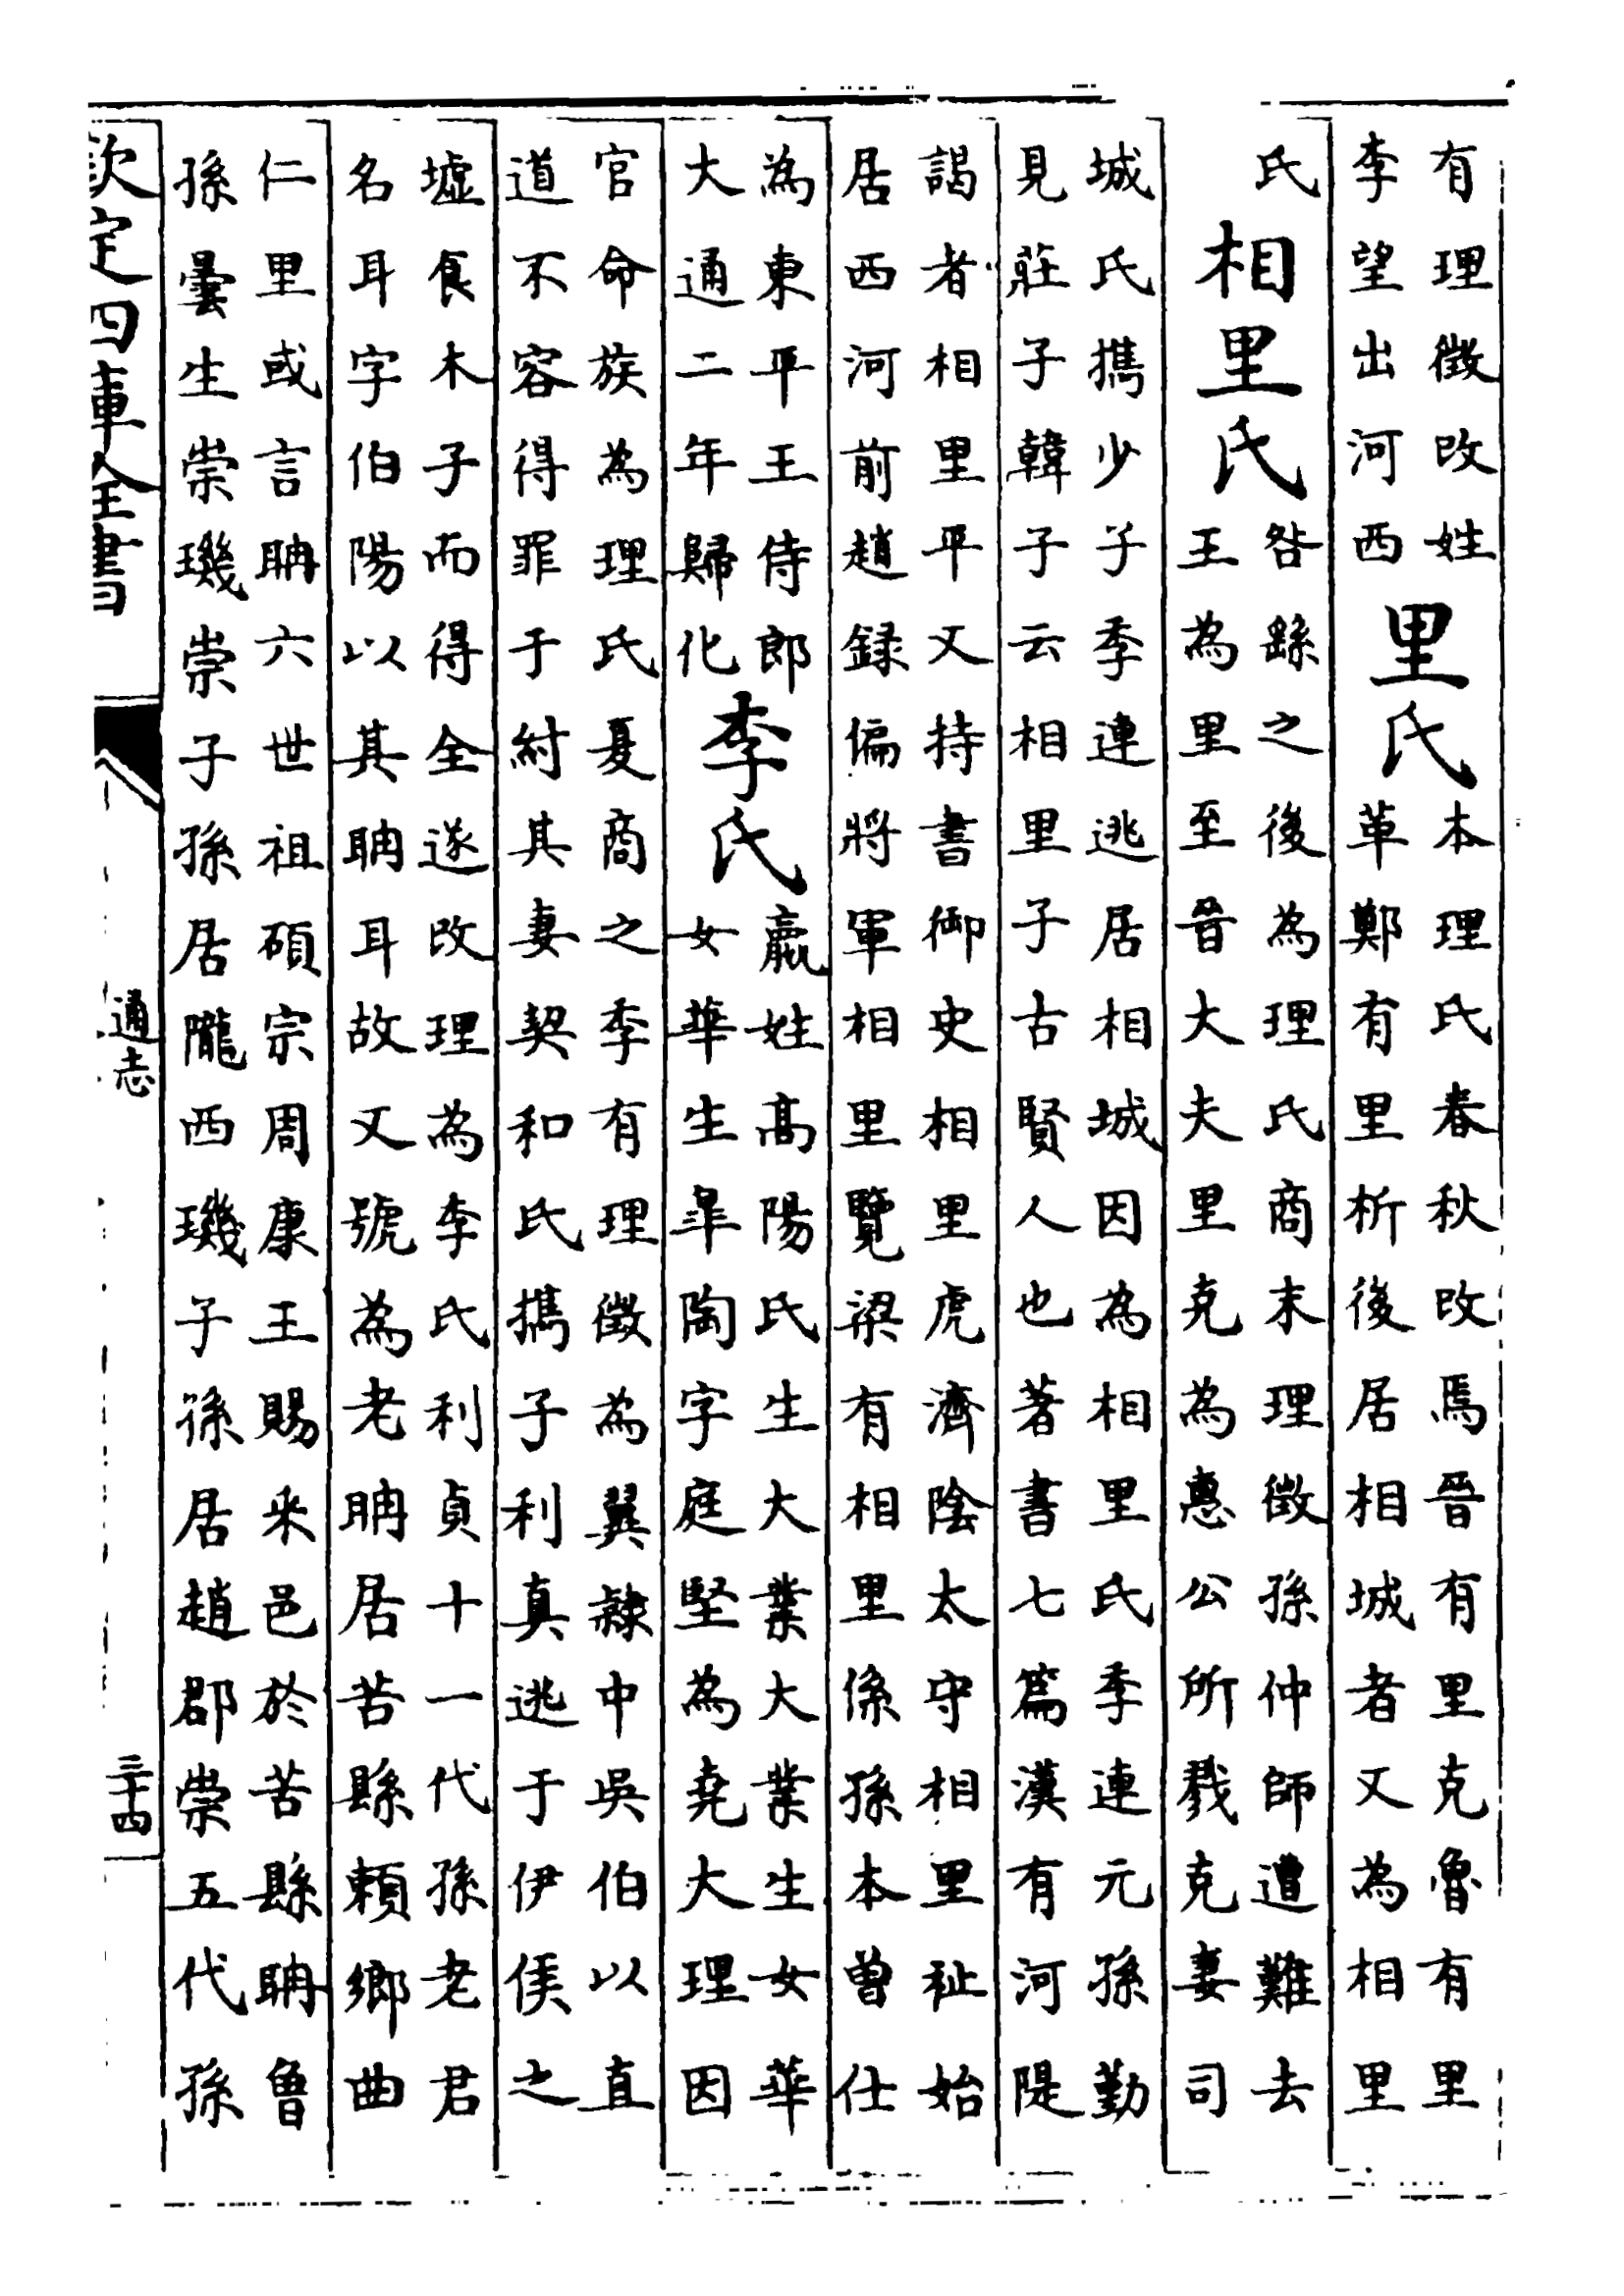 有理徴改姓
李望出河西
里氏
本理氏春秋改焉晉有里克魯有里
革鄭有里析後居相城者又為相里
氏
相里氏
咎繇之後為理氏商末理徴孫仲師遭難去
王為里至晉大夫里克為惠公所戮克妻司
城氏携少子季連逃居相城因為相里氏季連元孫勤
見莊子韓子云相里子古賢人也著書七篇漢有河隄
謁者相里平又持書御史相里虎濟陰太守相里祉始
居西河前趙録偏將軍相里覽梁有相里係孫本曾仕
為東平王侍郎
大通二年歸化
李氏
嬴姓高陽氏生大業大業生女華
女華生臯陶字庭堅為堯大理因
官命族為理氏夏商之季有理徴為翼隸中吳伯以直
道不容得罪于紂其妻契和氏携子利真逃于伊侯之
墟食木子而得全遂改理為李氏利貞十一代孫老君
名耳字伯陽以其聃耳故又號為老聃居苦縣賴鄉曲
仁里或言聃六世祖碩宗周康王賜采邑於苦縣聃魯
孫曇生崇璣崇子孫居隴西璣子孫居趙郡崇五代孫
欽定四庫全書
通志
三十四